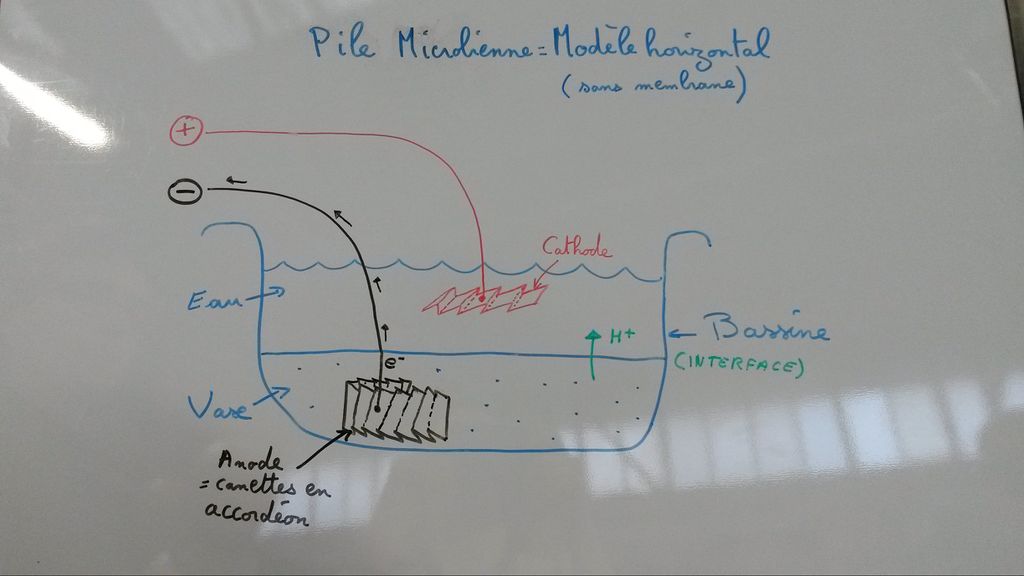 Pile Microbienne = Modèle horizontal
(sans membrane)
+
−
Cathode
Eau
H+
Bassine
(INTERFACE)
e-
Vase
Anode
= canettes en
accordéon